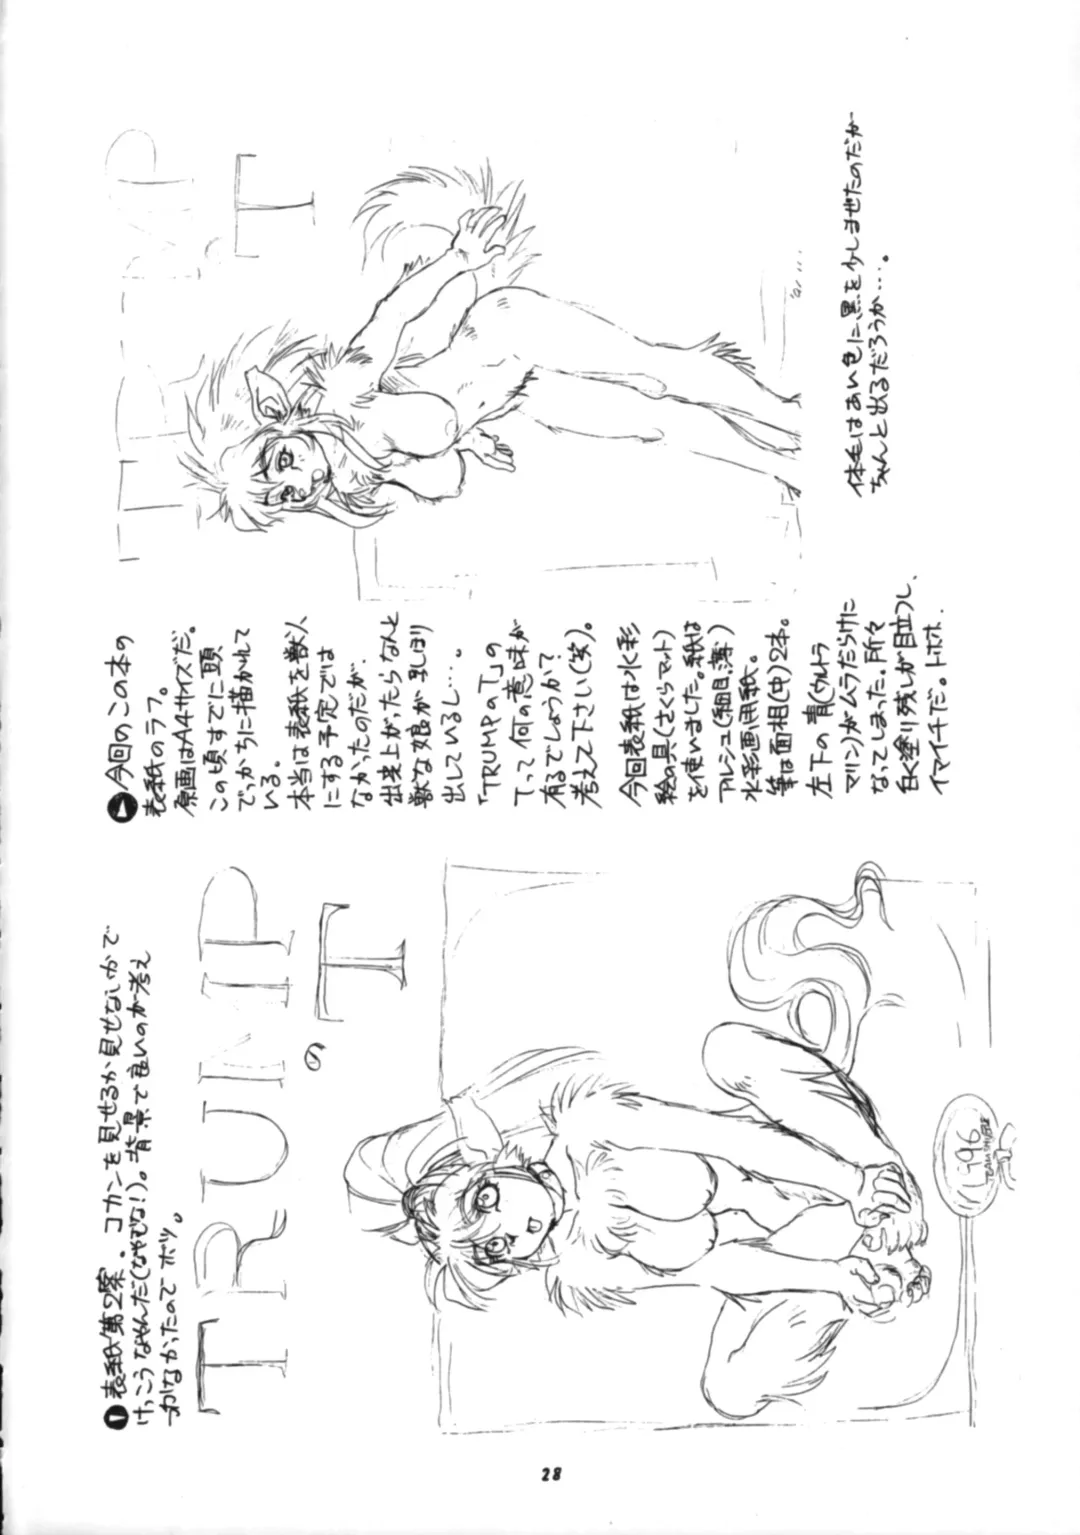 ❶表紙第2案。コカンを見せるか見せないかで
けっこうなやんだ(なやむな!)。背景で良いのが考え
つかなかったのでボツ。
TRUMP
の
T
1996
▶今回のこの本の
表紙のラフ。
原画はA4サイズだ。
この頃すでに頭
でっかちに描かれて
いる。
本当は表紙を獣人
にする予定では
なかったのだが、
出来上がったらなんと
獣な娘が乳しぼり
出しているし…。
「TRUMPのT」の
Tって何の意味が
有るでしょうか?
考えて下さい(笑)。
今回表紙は水彩
絵の具(さくらマット)
を使いました。紙は
アルシュ(細目、薄)
水彩画用紙。
筆は面相(中)2本。
左下の青(ウルトラ
マリン)がムラだらけに
なってしまった。所々
白く塗り残しが目立つし、
イマイチだ。トホホ.
TRUMP
の
T
体毛はあい色に、黒を少しませたのだが
ちゃんと出るだろうか…。
28